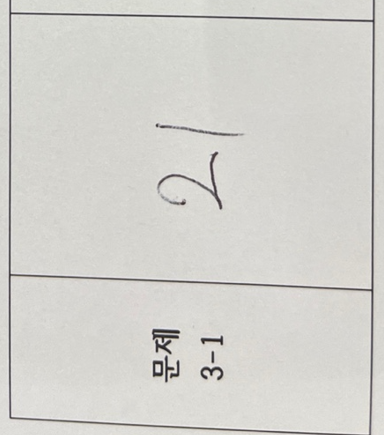 문제
3-1
21